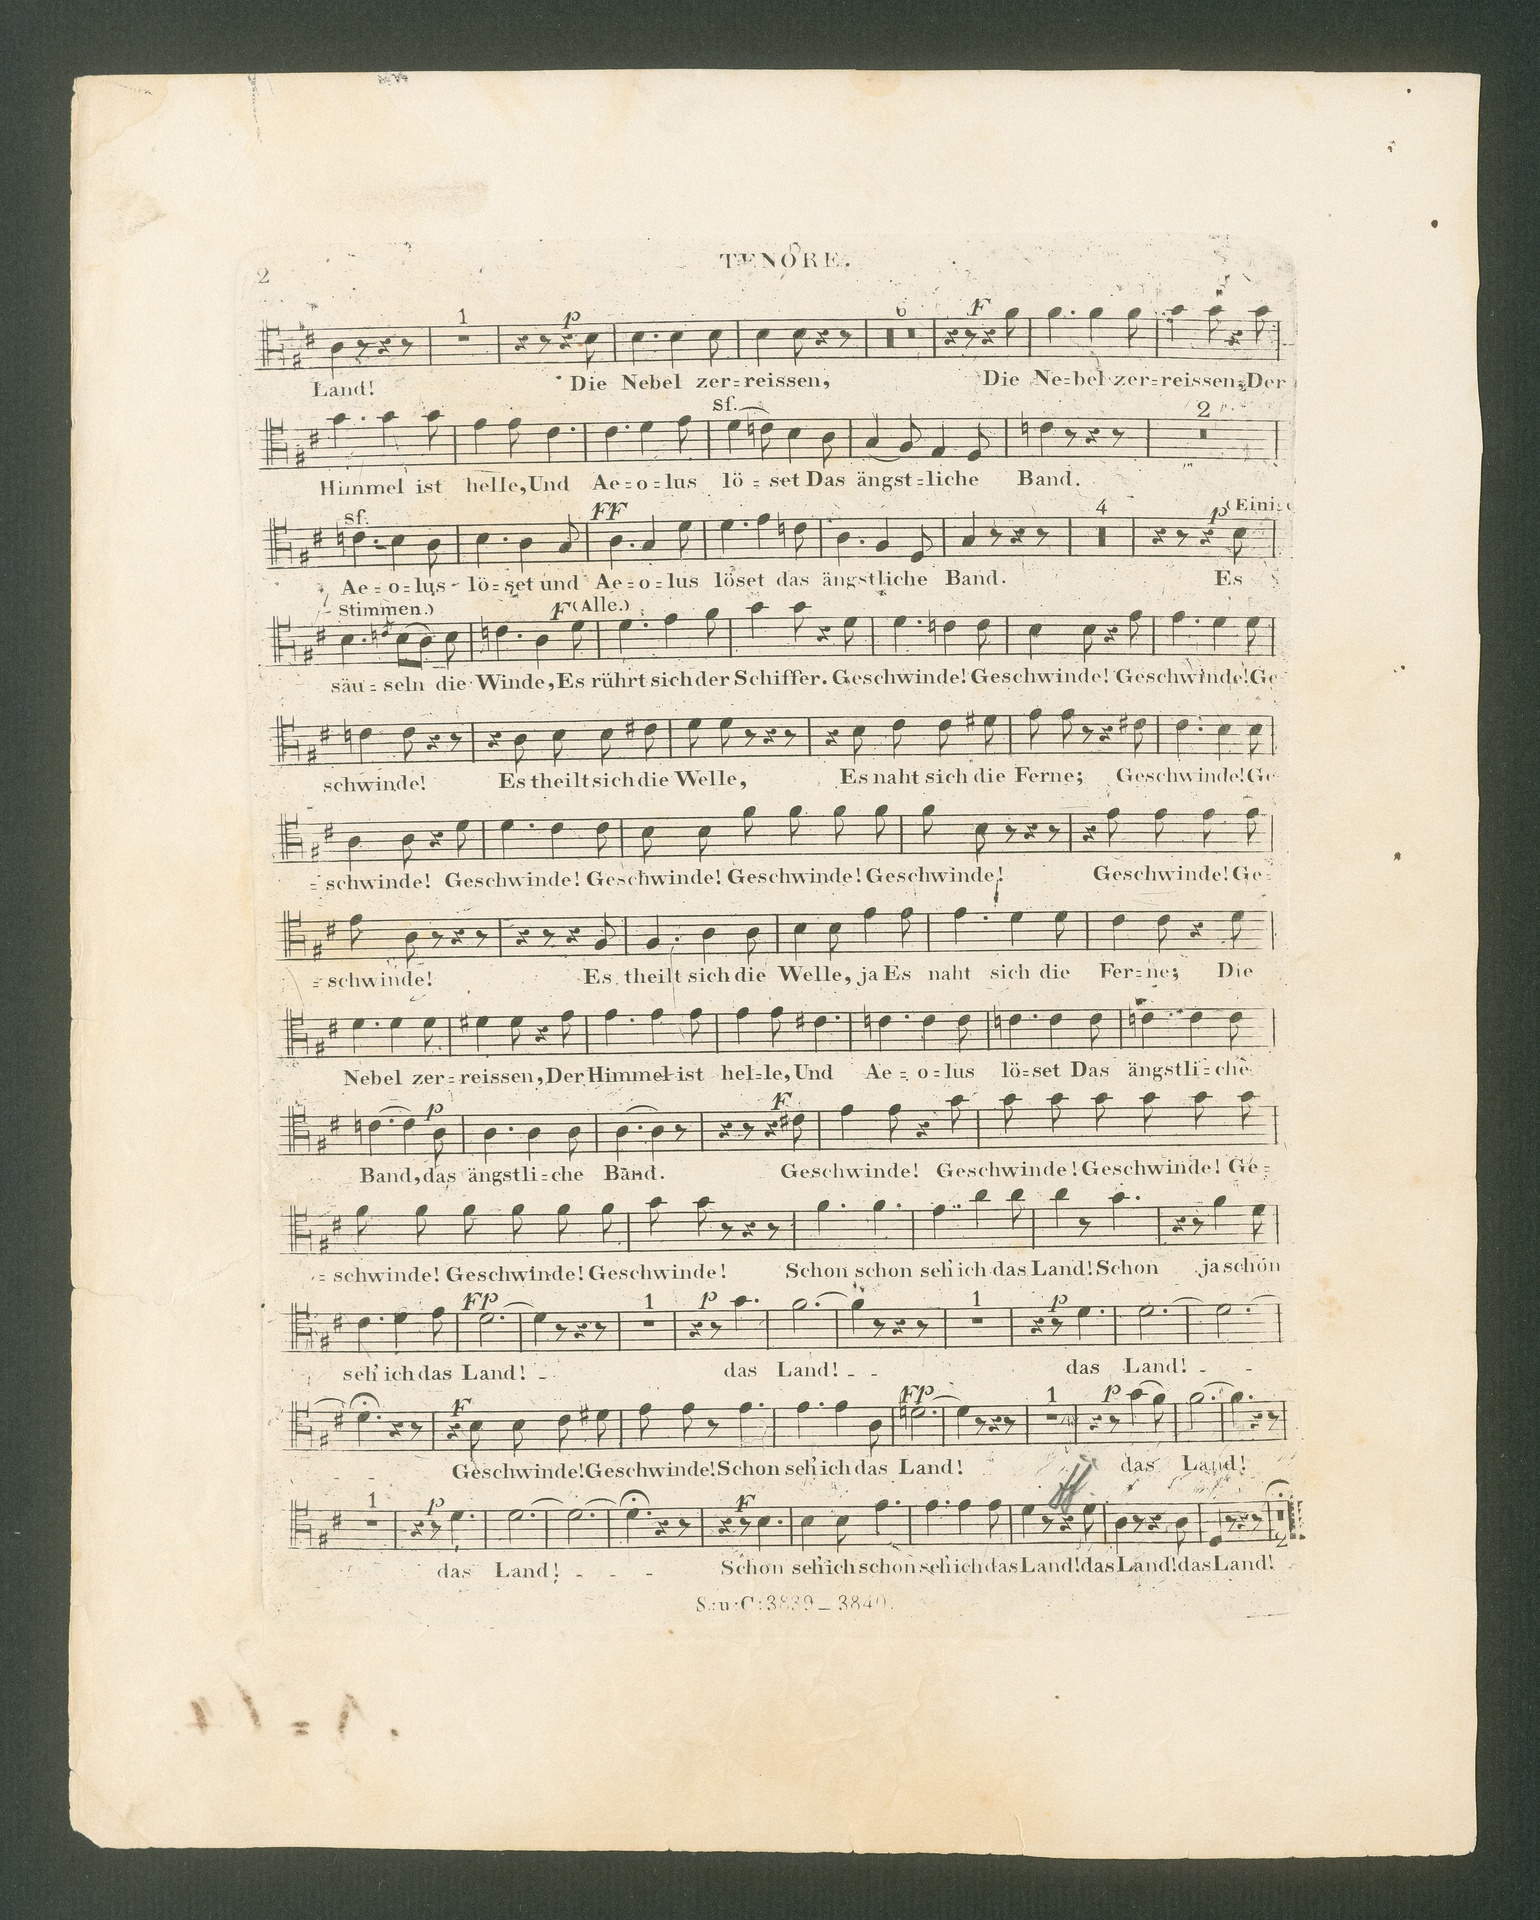 2
TENORE.
1 p 6 F
Land! Die Nebel zer=reissen, Die Ne=bel zer=reissen, Der
Sf. 2
Himmel ist helle, Und Ae=o=lus lö=set Das ängst=liche Band.
Sf. FF 4 p (Eini=
Ae=o=lus lö=set und Ae=o=lus löset das ängstliche Band. Es
Stimmen.) F (Alle.)
säu=seln die Winde, Es rührt sich der Schiffer. Geschwinde! Geschwinde! Geschwinde! Ge
schwinde! Es theilt sich die Welle, Es naht sich die Ferne; Geschwinde! Ge
=schwinde! Geschwinde! Geschwinde! Geschwinde! Geschwinde! Geschwinde! Ge=
=schwinde! Es theilt sich die Welle, ja Es naht sich die Fer=ne; Die
Nebel zer=reissen, Der Himmel ist hel=le, Und Ae=o=lus lö=set Das ängstli=che
p F
Band, das ängstli=che Band. Geschwinde! Geschwinde! Geschwinde! Ge=
=schwinde! Geschwinde! Geschwinde! Schon schon seh' ich das Land! Schon ja schon
Fp 1 p 1 p
seh' ich das Land! - das Land! - - das Land! - -
F Fp 1 p
- - Geschwinde! Geschwinde! Schon seh' ich das Land! das Land!
1 p F ff 2
das Land! - - - Schon seh' ich schon seh' ich das Land! das Land! das Land!
S: u: C: 3839 _ 3840.